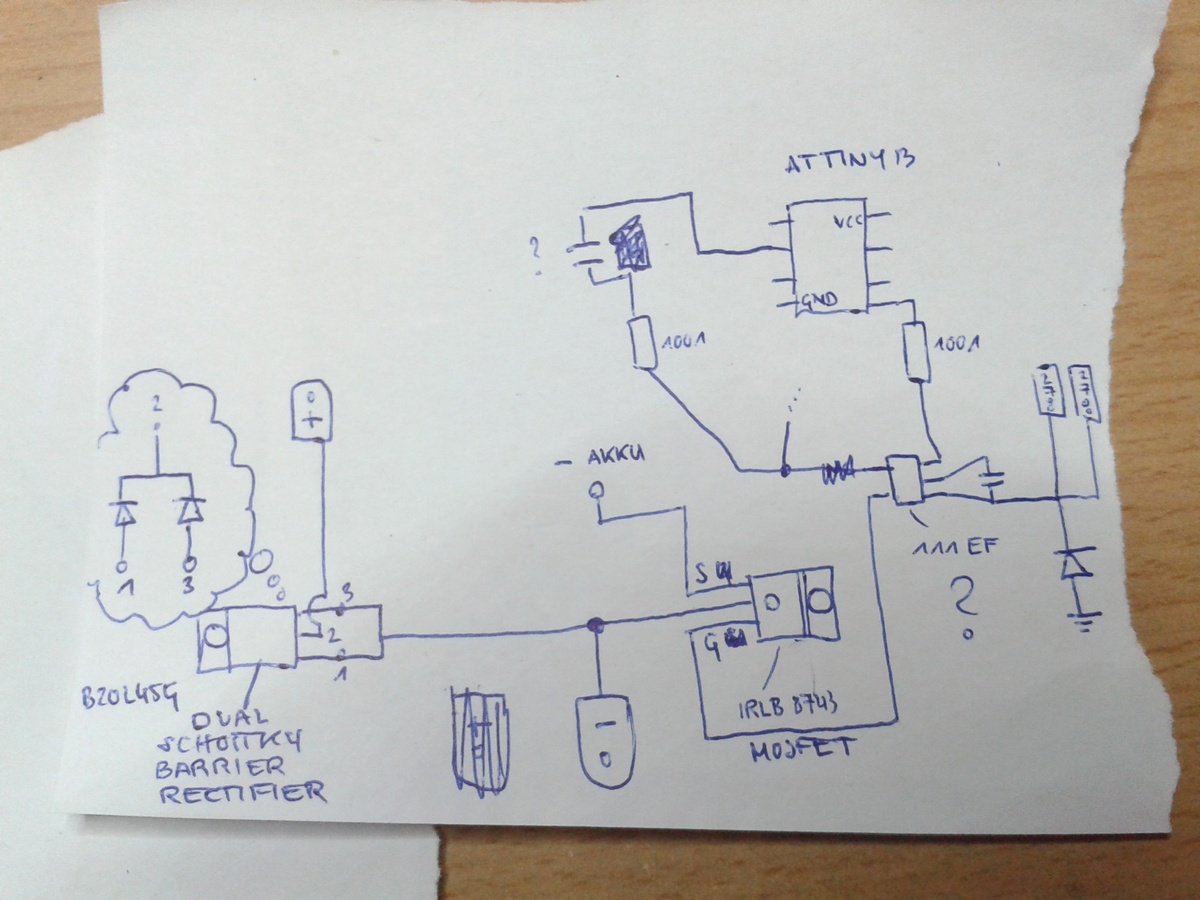 ATTINY13
VCC
?
GND
1001
1001
2
+
- AKKU
111EF
?
1
3
3
S
2
G
1
B20L45G
IRLB 8743
DUAL
SCHOTTKY
BARRIER
RECTIFIER
-
MOSFET